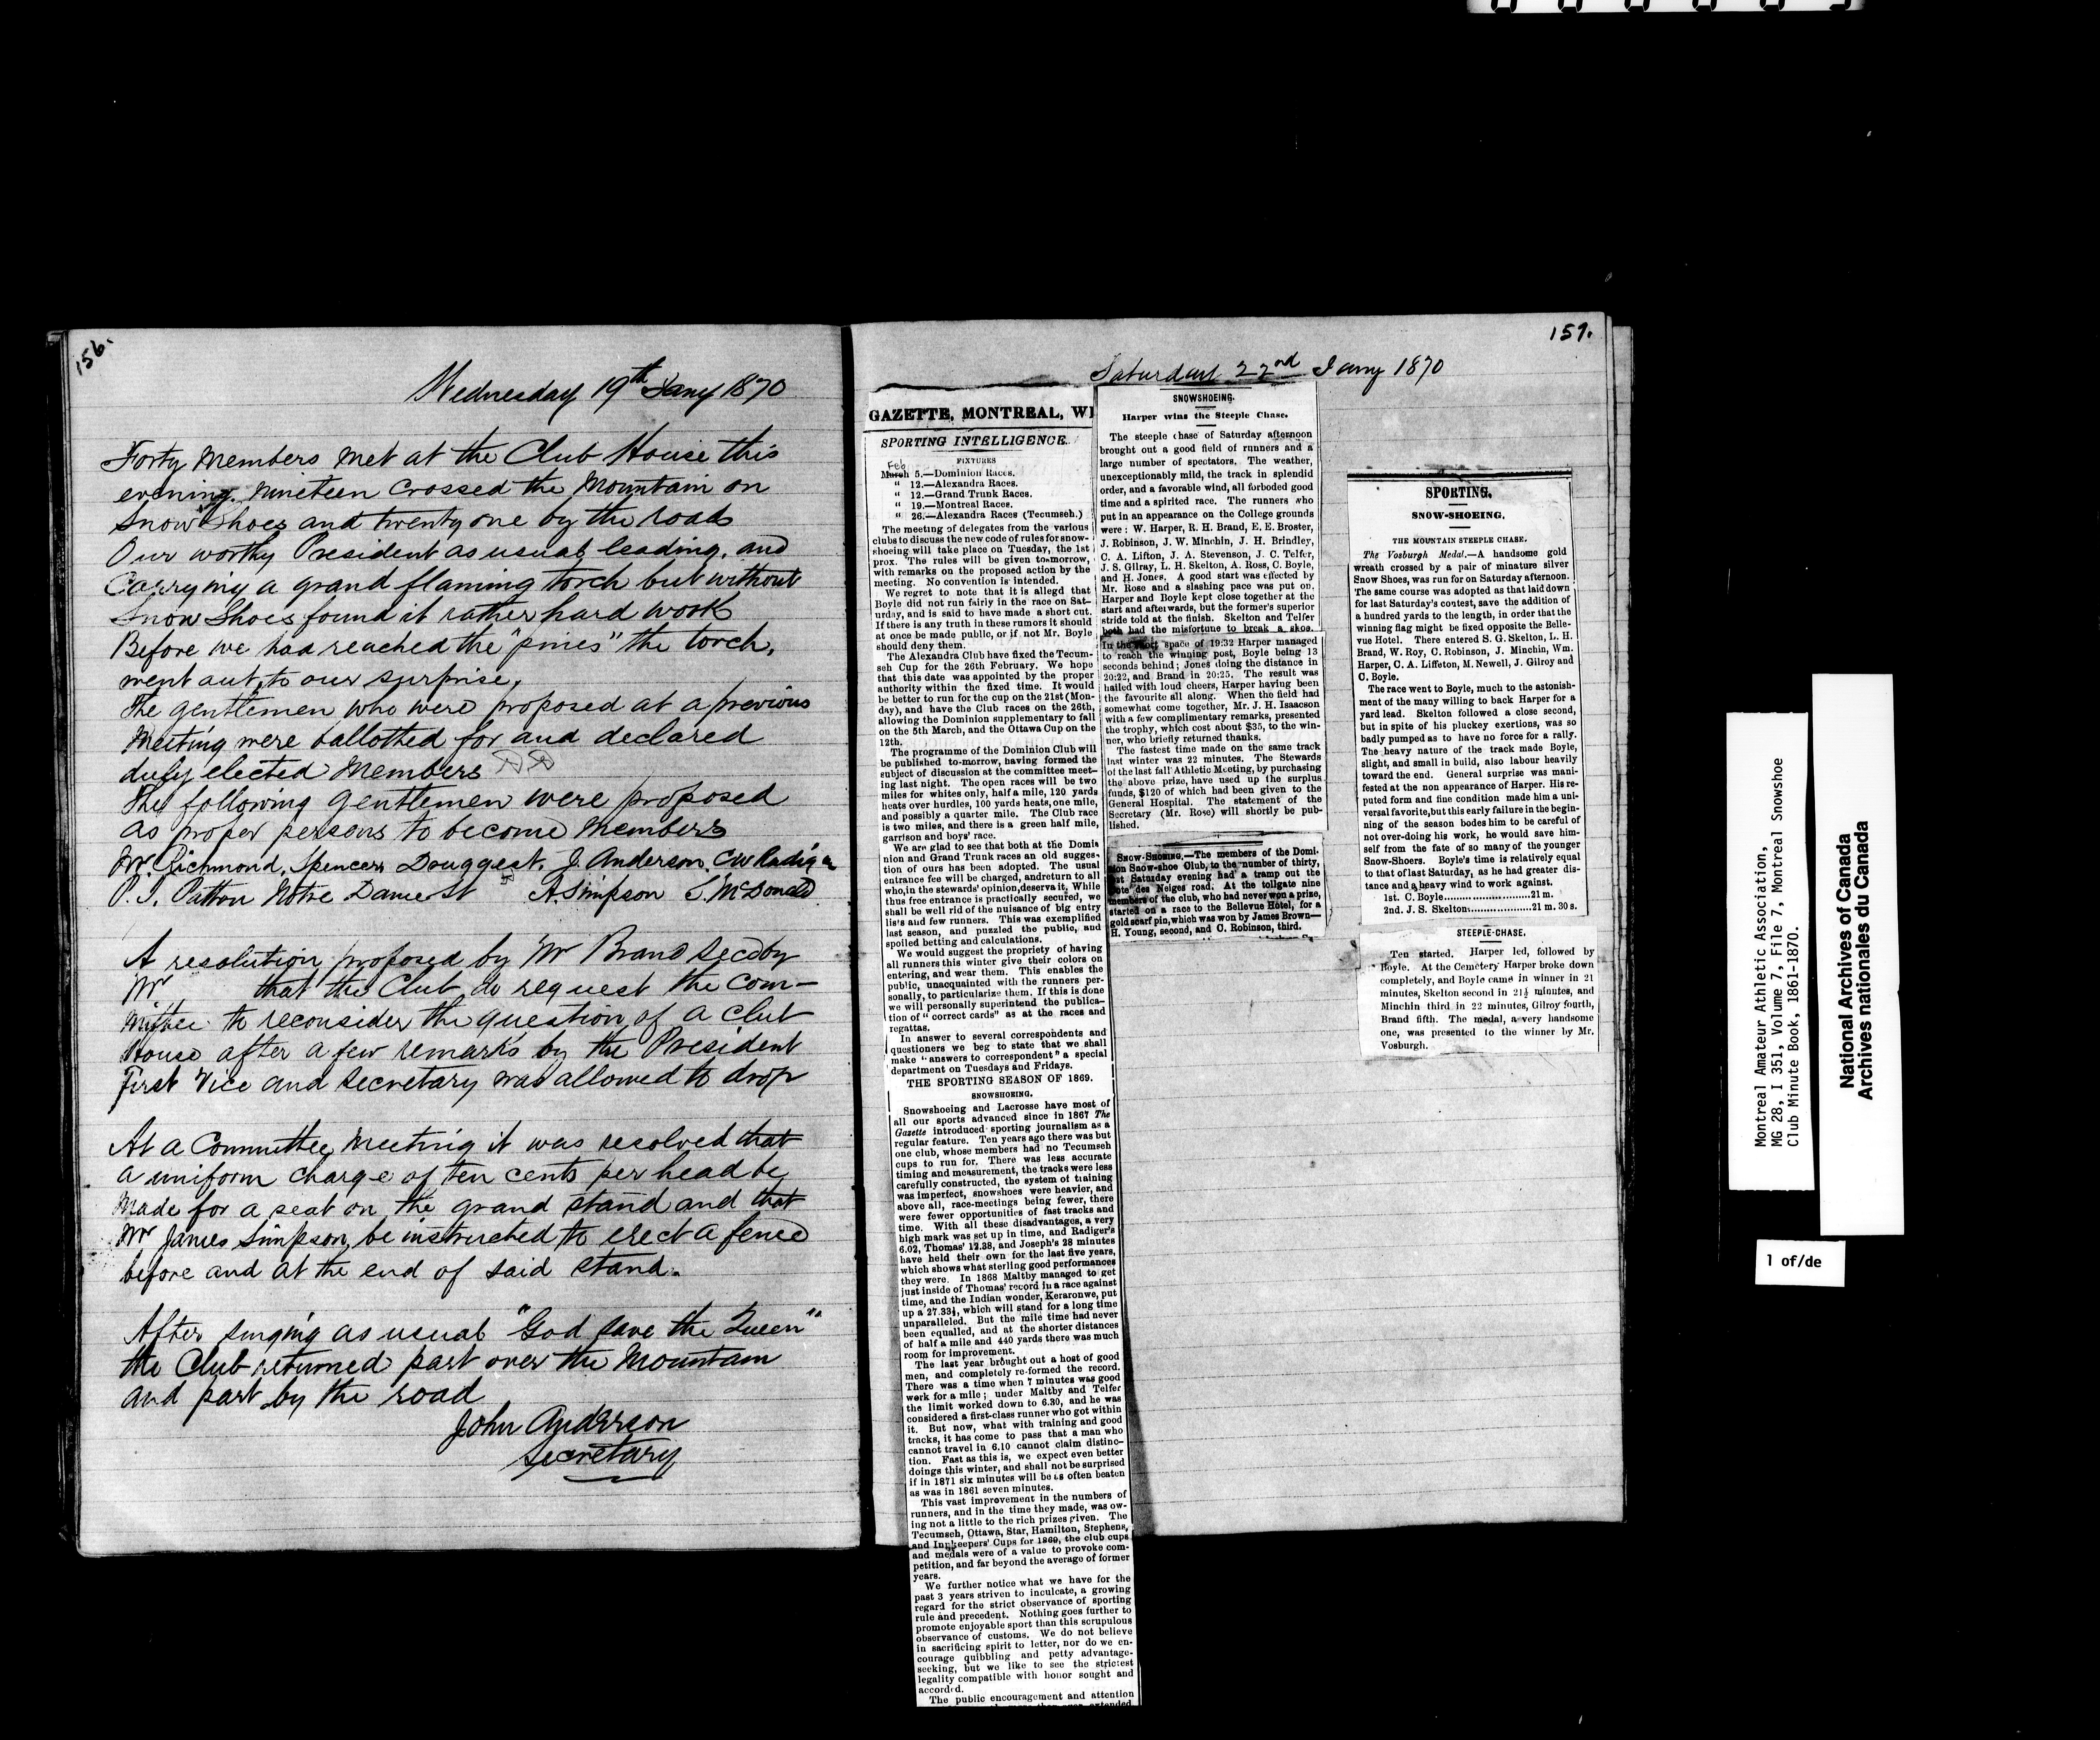 156.
Wednesday 19th Jany 1870
Forty Members Met at the Club House this
evening. Nineteen Crossed the Mountain on
Snow Shoes and twenty one by the roads
Our worthy President as usual leading, and
Carrying a grand flaming torch but without
Snow Shoes found it rather hard work
Before we had reached the "pines" the torch,
went out, to our surprise,
The gentlemen who were proposed at a previous
Meeting were ballotted for and declared
duly elected Members
The following gentlemen were proposed
as proper persons to become Members
Mr Richmond, Spencer, J. Anderson, CW Radiger
P. J. Patton Notre Dame St A. Simpson S. McDonald
A resolution proposed by Mr Brand Secd by
Mr that the Club do request the Com-
mittee to reconsider the question of a club
House after a few remarks by the President
First Vice and Secretary was allowed to drop
At a Committee Meeting it was resolved that
a uniform charge of ten cents per head be
Made for a seat on the grand stand and that
Mr James Simpson, be instructed to erect a fence
before and at the end of said stand.
After singing as usual "God save the Queen"
the Club returned part over the Mountain
and part by the road
John Anderson
Secretary
159.
Saturday 22nd Jany 1870
GAZETTE, MONTREAL, WE
SPORTING INTELLIGENCE.
FIXTURES
Feb
March 5.—Dominion Races.
" 12.—Alexandra Races.
" 12.—Grand Trunk Races.
" 19.—Montreal Races.
" 26.—Alexandra Races (Tecumseh.)
The meeting of delegates from the various
clubs to discuss the new code of rules for snow-
shoeing will take place on Tuesday, the 1st
prox. The rules will be given to-morrow,
with remarks on the proposed action by the
meeting. No convention is intended.
We regret to note that it is allegd that
Boyle did not run fairly in the race on Sat-
urday, and is said to have made a short cut.
If there is any truth in these rumors it should
at once be made public, or if not Mr. Boyle
should deny them.
The Alexandra Club have fixed the Tecum-
seh Cup for the 26th February. We hope
that this date was appointed by the proper
authority within the fixed time. It would
be better to run for the cup on the 21st (Mon-
day), and have the Club races on the 26th,
allowing the Dominion supplementary to fall
on the 5th March, and the Ottawa Cup on the
12th.
The programme of the Dominion Club will
be published to-morrow, having formed the
subject of discussion at the committee meet-
ing last night. The open races will be two
miles for whites only, half a mile, 120 yards
heats over hurdles, 100 yards heats, one mile,
and possibly a quarter mile. The Club race
is two miles, and there is a green half mile,
garrison and boys' race.
We are glad to see that both at the Domi
nion and Grand Trunk races an old sugges-
tion of ours has been adopted. The usual
entrance fee will be charged, andreturn to all
who,in the stewards' opinion,deserva it. While
thus free entrance is practically secured, we
shall be well rid of the nuisance of big entry
lists and few runners. This was exemplified
last season, and puzzled the public, and
spoiled betting and calculations.
We would suggest the propriety of having
all runners this winter give their colors on
entering, and wear them. This enables the
public, unacquainted with the runners per-
sonally, to particularize them. If this is done
we will personally superintend the publica-
tion of "correct cards" as at the races and
regattas.
In answer to several correspondents and
questioners we beg to state that we shall
make "answers to correspondent" a special
department on Tuesdays and Fridays.
THE SPORTING SEASON OF 1869.
SNOWSHOEING.
Snowshoeing and Lacrosse have most of
all our sports advanced since in 1867 The
Gazette introduced sporting journalism as a
regular feature. Ten years ago there was but
one club, whose members had no Tecumseh
cups to run for. There was less accurate
timing and measurement, the tracks were less
carefully constructed, the system of training
was imperfect, snowshoes were heavier, and
above all, race-meetings being fewer, there
were fewer opportunities of fast tracks and
time. With all these disadvantages, a very
high mark was set up in time, and Radiger's
6.02, Thomas' 12.38, and Joseph's 28 minutes
have held their own for the last five years,
which shows what sterling good performances
they were. In 1868 Maltby managed to get
just inside of Thomas' record in a race against
time, and the Indian wonder, Keraronwe, put
up a 27.33½, which will stand for a long time
unparalleled. But the mile time had never
been equalled, and at the shorter distances
of half a mile and 440 yards there was much
room for improvement.
The last year brought out a host of good
men, and completely re-formed the record.
There was a time when 7 minutes was good
work for a mile; under Maltby and Telfer
the limit worked down to 6.30, and he was
considered a first-class runner who got within
it. But now, what with training and good
tracks, it has come to pass that a man who
cannot travel in 6.10 cannot claim distinc-
tion. Fast as this is, we expect even better
doings this winter, and shall not be surprised
if in 1871 six minutes will be as often beaten
as was in 1861 seven minutes.
This vast improvement in the numbers of
runners, and in the time they made, was ow-
ing not a little to the rich prizes given. The
Tecumseh, Ottawa, Star, Hamilton, Stephens,
and Innkeepers' Cups for 1869, the club cups
and medals were of a value to provoke com-
petition, and far beyond the average of former
years.
We further notice what we have for the
past 3 years striven to inculcate, a growing
regard for the strict observance of sporting
rule and precedent. Nothing goes further to
promote enjoyable sport than this scrupulous
observance of customs. We do not believe
in sacrificing spirit to letter, nor do we en-
courage quibbling and petty advantage-
seeking, but we like to see the strictest
legality compatible with honor sought and
accorded.
The public encouragement and attention
SNOWSHOEING.
Harper wins the Steeple Chase.
The steeple chase of Saturday afternoon
brought out a good field of runners and a
large number of spectators. The weather,
unexceptionably mild, the track in splendid
order, and a favorable wind, all forboded good
time and a spirited race. The runners who
put in an appearance on the College grounds
were: W. Harper, R. H. Brand, E. E. Broster,
J. Robinson, J. W. Minchin, J. H. Brindley,
C. A. Lifton, J. A. Stevenson, J. C. Telfer,
J. S. Gilray, L. H. Skelton, A. Ross, C. Boyle,
and H. Jones. A good start was effected by
Mr. Rose and a slashing pace was put on.
Harper and Boyle kept close together at the
start and afterwards, but the former's superior
stride told at the finish. Skelton and Telfer
both had the misfortune to break a shoe.
In the short space of 19:32 Harper managed
to reach the winning post, Boyle being 13
seconds behind; Jones doing the distance in
20:22, and Brand in 20:25. The result was
hailed with loud cheers, Harper having been
the favourite all along. When the field had
somewhat come together, Mr. J. H. Isaacson
with a few complimentary remarks, presented
the trophy, which cost about $35, to the win-
ner, who briefly returned thanks.
The fastest time made on the same track
last winter was 22 minutes. The Stewards
of the last fall Athletic Meeting, by purchasing
the above prize, have used up the surplus
funds, $120 of which had been given to the
General Hospital. The statement of the
Secretary (Mr. Rose) will shortly be pub-
lished.
SNOW-SHOEING.—The members of the Domi-
nion Snow-shoe Club, to the number of thirty,
last Saturday evening had a tramp out the
Cote des Neiges road. At the tollgate nine
members of the club, who had never won a prize,
started on a race to the Bellevue Hotel, for a
gold scarf pin,which was won by James Brown—
H. Young, second, and C. Robinson, third.
SPORTING.
SNOW-SHOEING.
THE MOUNTAIN STEEPLE CHASE.
The Vosburgh Medal.—A handsome gold
wreath crossed by a pair of minature silver
Snow Shoes, was run for on Saturday afternoon.
The same course was adopted as that laid down
for last Saturday's contest, save the addition of
a hundred yards to the length, in order that the
winning flag might be fixed opposite the Belle-
vue Hotel. There entered S. G. Skelton, L. H.
Brand, W. Roy, C. Robinson, J. Minchin, Wm.
Harper, C. A. Liffeton, M. Newell, J. Gilroy and
C. Boyle.
The race went to Boyle, much to the astonish-
ment of the many willing to back Harper for a
yard lead. Skelton followed a close second,
but in spite of his pluckey exertions, was so
badly pumped as to have no force for a rally.
The heavy nature of the track made Boyle,
slight, and small in build, also labour heavily
toward the end. General surprise was mani-
fested at the non appearance of Harper. His re-
puted form and fine condition made him a uni-
versal favorite,but this early failure in the begin-
ning of the season bodes him to be careful of
not over-doing his work, he would save him-
self from the fate of so many of the younger
Snow-Shoers. Boyle's time is relatively equal
to that of last Saturday, as he had greater dis-
tance and a heavy wind to work against.
1st. C. Boyle........................21 m.
2nd. J. S. Skelton..................21 m. 30 s.
STEEPLE-CHASE.
Ten started. Harper led, followed by
Boyle. At the Cemetery Harper broke down
completely, and Boyle came in winner in 21
minutes, Skelton second in 21½ minutes, and
Minchin third in 22 minutes, Gilroy fourth,
Brand fifth. The medal, a very handsome
one, was presented to the winner by Mr.
Vosburgh.
Montreal Amateur Athletic Association,
MG 28, I 351, Volume 7, File 7, Montreal Snowshoe
Club Minute Book, 1861-1870.
National Archives of Canada
Archives nationales du Canada
1 of/de